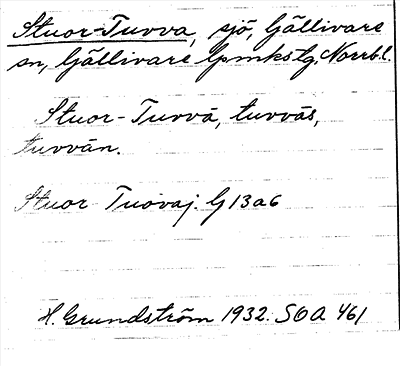 Stuor-Tuvva, sjö, Gällivare
sn, Gällivare lpmkslg, Norrb.l.
Stuor-Tuvvā, tuvvās,
tuvvān.
Stuor Tuovaj. G 13a6
H. Grundström 1932. SOA 461